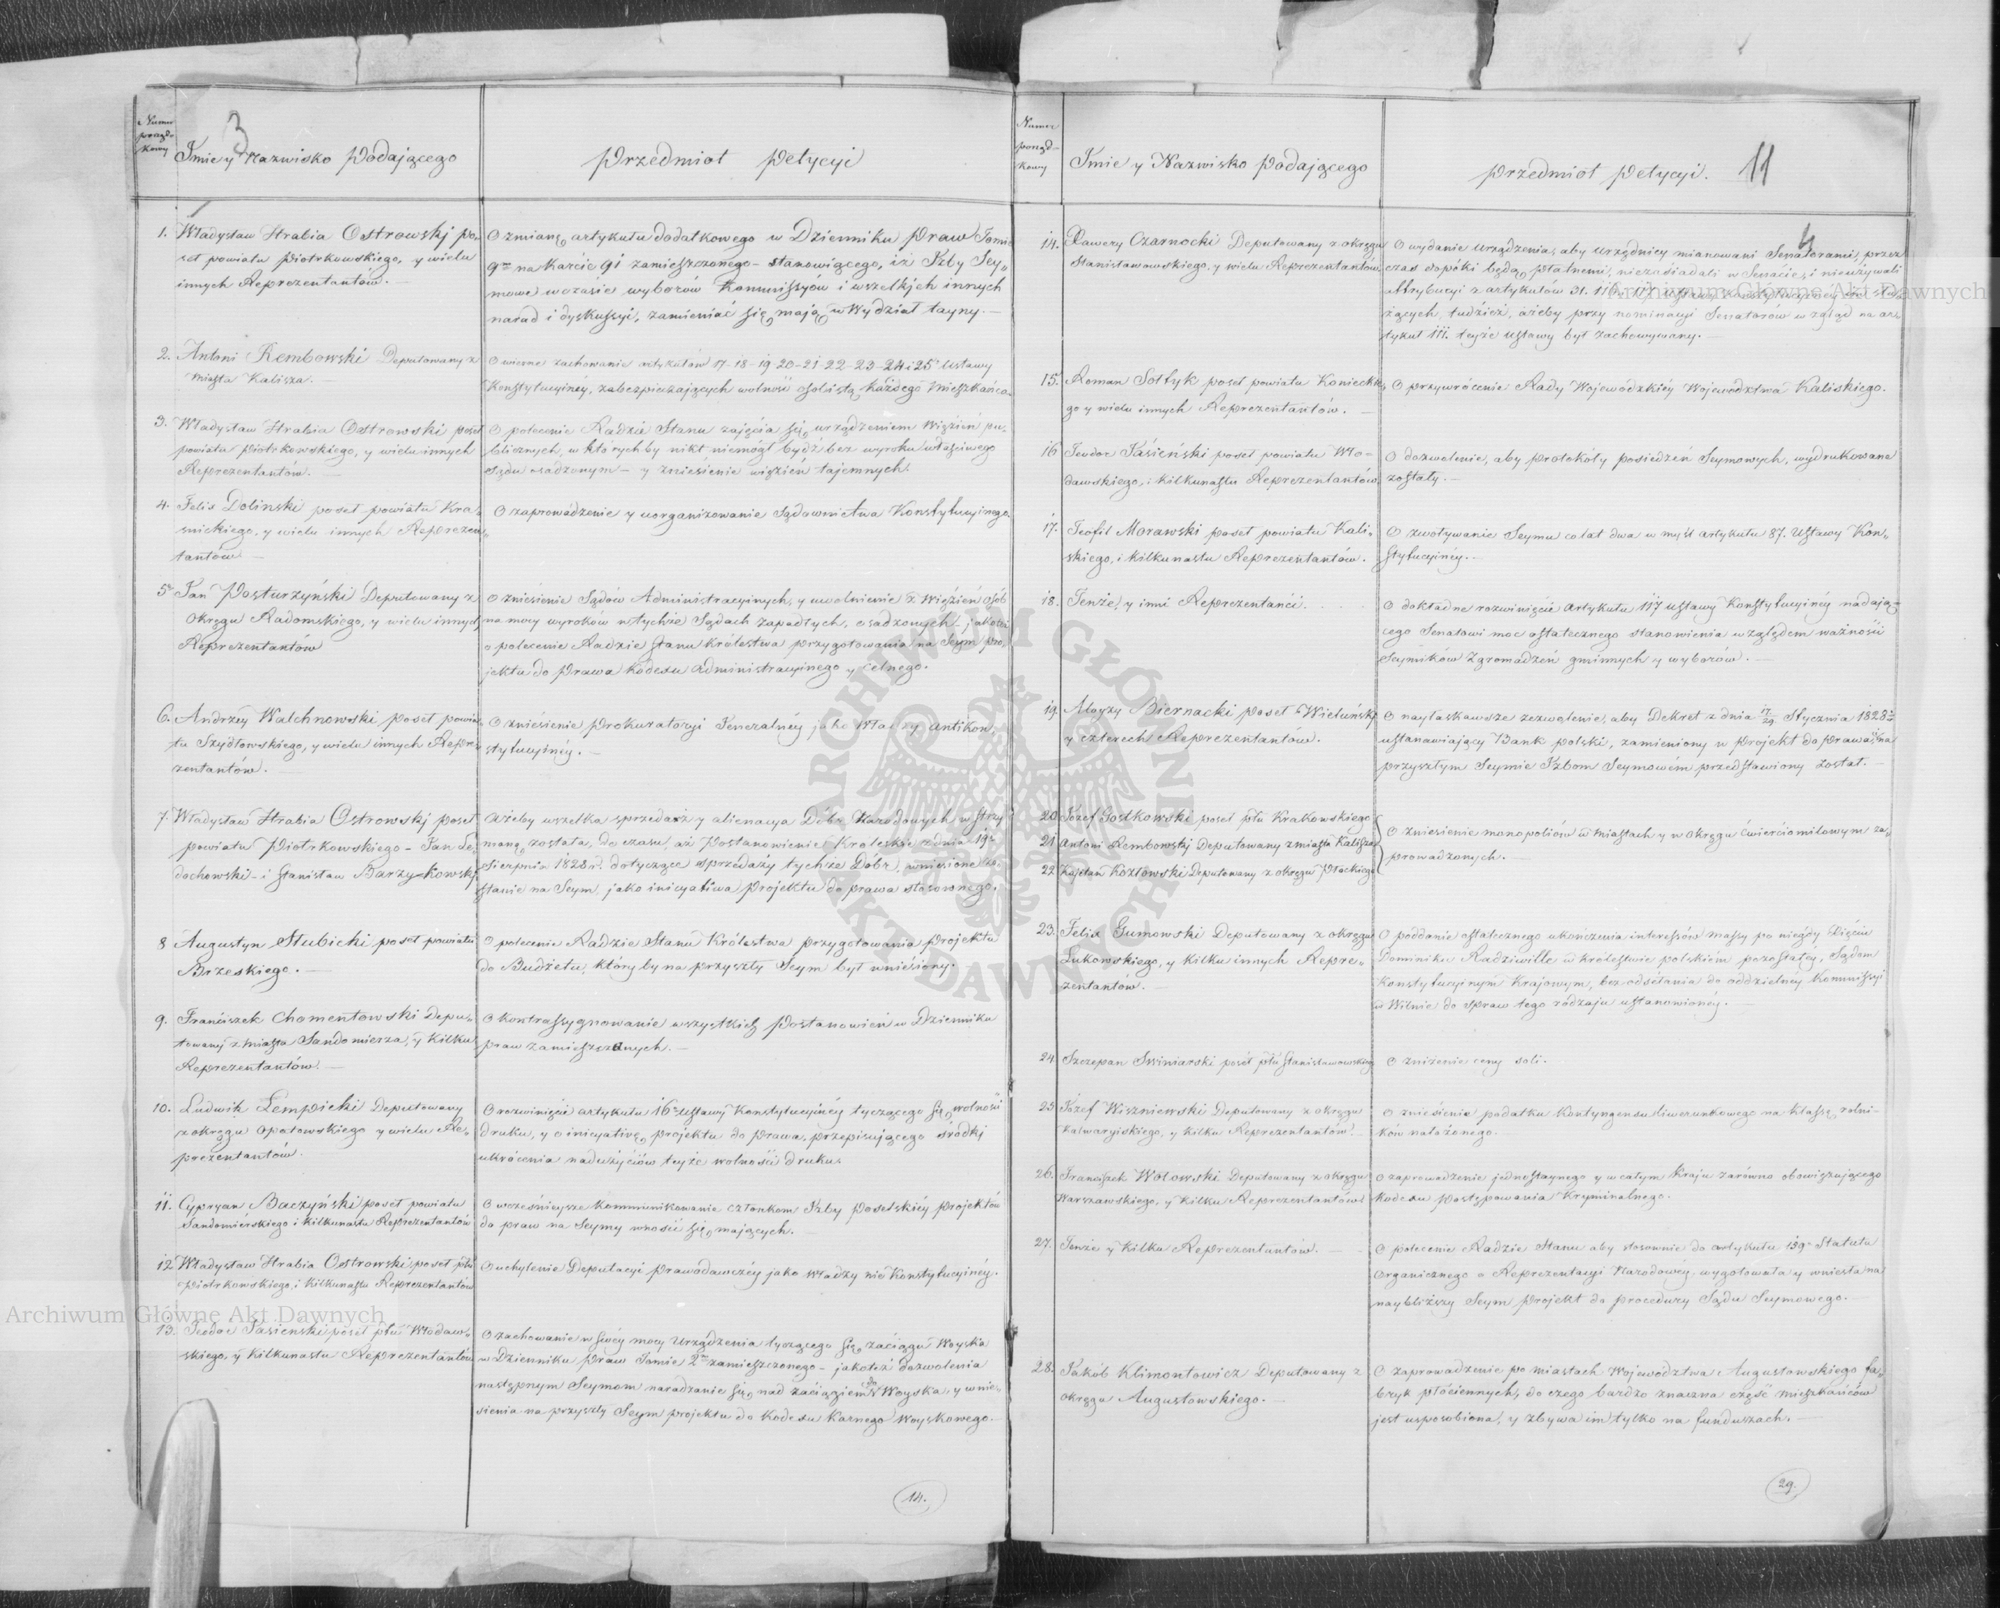 Numer
porząd-
kowy
3
Imie y Nazwisko Podaiącego
Przedmiot Petycyi
1. Władysław Hrabia Ostrowskj po-
seł powiatu Piotrkowskiego, y wielu
innych Reprezentantów. —
O zmianę artykułu dodatkowego w Dzienniku Praw Tomie
9m na karcie 91 zamieszczonego – stanowiącego, iż Izby Sey-
mowe w czasie wyborów Kommissyow i wszelkich innych
narad i dyskussyi, zamieniać się maią w Wydział tayny. —
2. Antoni Rembowski Deputowany z
Miasta Kalisza. —
O wierne zachowanie artykułów 17-18-19-20-21-22-23-24 i 25 Ustawy
Konstytucyiney, zabezpieczaiących wolność osobistą każdego Mieszkańca.
3. Władysław Hrabia Ostrowski poseł
powiatu Piotrkowskiego, y wielu innych
Reprezentantów. —
O polecenie Radzie Stanu zaięcia się urządzeniem Więzień pu-
blicznych, w którychby nikt niemógł bydź bez wyroku właściwego
Sądu osadzonym – y zniesienie więzień taiemnych.
4. Felix Doliński poseł powiatu Kra-
snickiego, y wielu innych Reprezen-
tantów —
O zaprowadzenie y uorganizowanie Sądownictwa Konstytucyinego.
5. Jan Posturzyński Deputowany z
Okręgu Radomskiego, y wielu innych
Reprezentantów
O zniesienie Sądów Administracyinych, y uwolnienie z Więzień osób
na mocy wyroków w tychże Sądach zapadłych, osadzonych – jakoteż
o polecenie Radzie Stanu Królestwa przygotowania na Seym pro-
jektu do Prawa Kodexu Administracyinego y Celnego.
6. Andrzey Walchnowski poseł powia-
tu Szydłowskiego, y wielu innych Repre-
zentantów. —
O zniesienie Prokuratoryi Jeneralney jako Władzy antikon-
stytucyiney. —
7. Władysław Hrabia Ostrowskj poseł
powiatu Piotrkowskiego – Jan Le-
dochowski – i Stanisław Barzykowskj
Ażeby wszelka sprzedaż y alienacya Dóbr Narodowych wstrzy-
maną została, do czasu, aż Postanowienie Królewskie z dnia 19
Sierpnia 1828 r. dotyczące sprzedaży tychże Dóbr, wniesione zo-
stanie na Seym, jako inicyatiwa projektu do prawa stosownego.
8 Augustyn Słubicki poseł powiatu
Brzeskiego. —
O polecenie Radzie Stanu Królestwa przygotowania Projektu
do Budżetu, który by na przyszły Seym był wniesiony.
9. Franciszek Chomentowski Depu-
towany z Miasta Sandomierza, y kilku
Reprezentantów. —
O kontrassygnowanie wszystkich Postanowień w Dzienniku
praw zamieszczonych. —
10. Ludwik Łempicki Deputowany
z okręgu Opatowskiego y wielu Re-
prezentantów.
O rozwinięcie artykułu 16 Ustawy Konstytucyiney tyczącego się wolności
druku, y o inicyativę projektu do prawa, przepisuiącego środkj
ukrócenia nadużyciów teyże wolności druku.
11. Cypryan Baczyński poseł powiatu
Sandomierskiego i kilkunastu Reprezentantów
O wcześnieysze kommunikowanie członkom Izby Poselskiey projektów
do praw na Seymy wnosić się maiących. —
12 Władysław Hrabia Ostrowski poseł ptu
Piotrkowskiego, i kilkunastu Reprezentantów
O uchylenie Deputacyi Prawodawczey jako Władzy nie Konstytucyiney.
13. Teodor Jasieński poseł ptu Włodaw-
skiego, y kilkunastu Reprezentantów
O zachowanie w swey mocy Urządzenia tyczącego się zaciągu Woyska
w Dzienniku Praw Tomie 2m zamieszczonego – jakoteż dozwolenia
następnym Seymom naradzanie się nad zaciągiem do Woyska, y wnie-
sienia na przyszły Seym projektu do Kodexu Karnego Woyskowego. —
14.
Numer
porząd-
kowy
Imie y Nazwisko Podaiącego
Przedmiot Petycyi.
11
4
14. Xawery Czarnocki Deputowany z okręgu
Stanisławowskiego, y wielu Reprezentantów
O wydanie urządzenia, aby urzędnicy mianowani Senatorami, przez
czas dopóki będą płatnemi, niezasiadali w Senacie, i nieużywali
attrybucyi z artykułów 31. 110. 117 Ustawy Konstytucyiney im słu-
żących, tudzież, ażeby przy nominacyi Senatorów wzgląd na ar-
tykuł 111. teyże Ustawy był zachowywany. —
15. Roman Sołtyk poseł powiatu Konieckie-
go y wielu innych Reprezentantów. —
O przywrócenie Rady Wojewódzkiey Województwa Kaliskiego.
16 Teodor Jasieński poseł powiatu Wło-
dawskiego, i kilkunastu Reprezentantów
O dozwolenie, aby protokóły posiedzeń Seymowych, wydrukowane
zostały. —
17. Teofil Morawski poseł powiatu Kali-
skiego, i kilkunastu Reprezentantów.
O zwoływanie Seymu co lat dwa w myśl artykułu 87. Ustawy Kon-
stytucyiney. —
18. Tenże, y inni Reprezentanci.
O dokładne rozwinięcie Artykułu 117 Ustawy Konstytucyiney nadaią-
cego Senatowi moc ostatecznego stanowienia względem ważności
Seymików Zgromadzeń gminnych y wyborów. —
19. Aloyzy Biernacki poseł Wieluński
y czterech Reprezentantów.
O nayłaskawsze zezwolenie, aby Dekret z dnia 17/29 Stycznia 1828 r.
ustanawiaiący Bank polski, zamieniony w projekt do prawa, na
przyszłym Seymie Izbom Seymowem przedstawiony został. —
20 Józef Gostkowski poseł ptu Krakowskiego
21 Antoni Rembowskj Deputowany z miasta Kalisza
22 Kajetan Kozłowski Deputowany z okręgu Płockiego
O zniesienie monopoliów w miastach y w okręgu ćwierciomilowym za-
prowadzonych. —
23. Felix Gumowski Deputowany z okręgu
Łukowskiego, y kilku innych Repre-
zentantów. —
O poddanie ostatecznego ukończenia interessów massy po niegdy Xięciu
Dominiku Radziwille w Królestwie polskiem pozostałey, Sądom
Konstytucyinym Krajowym, bez odsełania do oddzielney Kommissyi
w Wilnie do spraw tego rodzaju ustanowioney. —
24 Szczepan Swiniarski poseł ptu Stanisławowskiego
O zniżenie ceny soli.
25 Józef Wiszniewski Deputowany z okręgu
Kalwaryiskiego, y kilku Reprezentantów.
O zniesienie podatku kontyngensu liwerunkowego na klassę rolni-
ków nałożonego. —
26. Franciszek Wołowski Deputowany z okręgu
Warszawskiego, y kilku Reprezentantów
O zaprowadzenie jednostaynego y w całym Kraju zarówno obowiązuiącego
Kodexu Postępowania Kryminalnego.
27. Tenże y kilku Reprezentantów. —
O polecenie Radzie Stanu aby stosownie do artykułu 159 Statutu
Organicznego o Reprezentacyi Narodowey, wygotowała y wniesła na
naybliższy Seym projekt do procedury Sądu Seymowego. —
28. Jakób Klimontowicz Deputowany z
Okręgu Augustowskiego. —
O zaprowadzenie po miastach Województwa Augustowskiego fa-
bryk płóciennych, do czego bardzo znaczna część mieszkańców
jest usposobiona, y zbywa im tylko na funduszach. —
29.
Archiwum Główne Akt Dawnych
Archiwum Główne Akt Dawnych
ARCHIWUM GŁÓWNE AKT DAWNYCH